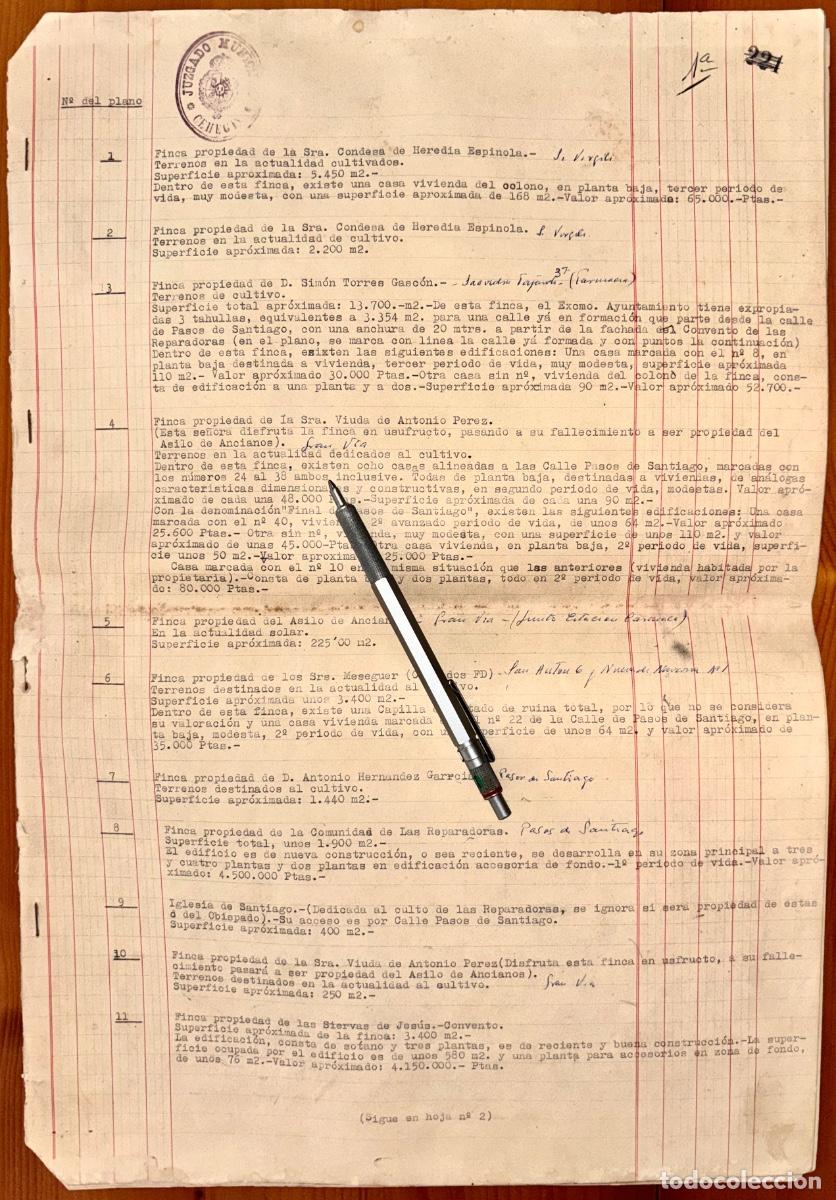 JUZGADO MUNI
CEHEGIN
1ª
221
Nº del plano
1
Finca propiedad de la Sra. Condesa de Heredia Espinola.-
Terrenos en la actualidad cultivados.
Superficie aproximada: 5.450 m2.-
Dentro de esta finca, existe una casa vivienda del colono, en planta baja, tercer periodo de
vida, muy modesta, con una superficie aproximada de 168 m2.-Valor aproximada: 65.000.-Ptas.-
2
Finca propiedad de la Sra. Condesa de Heredia Espinola.
Terrenos en la actualidad de cultivo.
Superficie apróximada: 2.200 m2.
3
Finca propiedad de D. Simón Torres Gascón.- Saavedra Fajardo- 37 (Farmacia)
Terrenos de cultivo.
Superficie total apróximada: 13.700.-m2.-De esta finca, el Excmo. Ayuntamiento tiene expropia-
das 3 tahullas, equivalentes a 3.354 m2. para una calle yá en formación que parte desde la calle
de Pasos de Santiago, con una anchura de 20 mtrs. a partir de la fachada del Convento de las
Reparadoras (en el plano, se marca con linea la calle yá formada y con puntos la continuación)
Dentro de esta finca, esixten las siguientes edificaciones: Una casa marcada con el nº 8, en
planta baja destinada a vivienda, tercer periodo de vida, muy modesta, superficie apróximada
110 m2.- Valor apróximado 30.000 Ptas.-Otra casa sin nº, vivienda del colono de la finca, cons-
ta de edificación a una planta y a dos.-Superficie apróximada 90 m2.-Valor apróximado 52.700.-
4
Finca propiedad de la Sra. Viuda de Antonio Perez.
(Esta señora disfruta la finca en usufructo, pasando a su fallecimiento a ser propiedad del
Asilo de Ancianos). Gran Via
Terrenos en la actualidad dedicados al cultivo.
Dentro de esta finca, existen ocho casas alineadas a las Calle Pasos de Santiago, marcadas con
los números 24 al 38 ambos inclusive. Todas de planta baja, destinadas a viviendas, de análogas
características dimensionales y constructivas, en segundo periodo de vida, modestas. Valor apró-
ximado de cada una 48.000 Ptas.-Superficie apróximada de cada una 90 m2.-
Con la denominación"Final de Pasos de Santiago", existen las siguientes edificaciones: Una casa
marcada con el nº 40, vivienda, 2º avanzado periodo de vida, de unos 64 m2.-Valor apróximado
25.600 Ptas.- Otra sin nº, vivienda, muy modesta, con una superficie de unos 110 m2. y valor
apróximado de unas 45.000-Ptas. Otra casa vivienda, en planta baja, 2º periodo de vida, superfi-
cie unos 50 m2.-Valor aproximado 25.000 Ptas.-
Casa marcada con el nº 10 en la misma situación que las anteriores (vivienda habitada por la
propietaria).-Consta de planta baja y dos plantas, todo en 2º periodo de vida, valor apróxima-
do: 80.000 Ptas.-
5
Finca propiedad del Asilo de Ancianos Gran Via - (Junto Estacion Caravaca)
En la actualidad solar.
Superficie apróximada: 225'00 m2.
6
Finca propiedad de los Srs. Meseguer FD)- San Anton 6 y Nº 1
Terrenos destinados en la actualidad al cultivo.
Superficie apróximada unos 3.400 m2.-
Dentro de esta finca, existe una Capilla estado de ruina total, por lo que no se considera
su valoración y una casa vivienda marcada el nº 22 de la Calle de Pasos de Santiago, en plan-
ta baja, modesta, 2º periodo de vida, con una superficie de unos 64 m2. y valor apróximado de
35.000 Ptas.-
7
Finca propiedad de D. Antonio Hernandez Garrcia Pasos de Santiago
Terrenos destinados al cultivo.
Superficie apróximada: 1.440 m2.-
8
Finca propiedad de la Comunidad de Las Reparadoras. Pasos de Santiago
Superficie total, unos 1.900 m2.-
El edificio es de nueva construcción, o sea reciente, se desarrolla en su zona principal a tres
y cuatro plantas y dos plantas en edificación accesoria de fondo.-1º periodo de vida.-Valor apró-
ximado: 4.500.000 Ptas.-
9
Iglesia de Santiago.-(Dedicada al culto de las Reparadoras, se ignora si será propiedad de estas
ó del Obispado).-Su acceso es por Calle Pasos de Santiago.
Superficie apróximada: 400 m2.-
10
Finca propiedad de la Sra. Viuda de Antonio Perez(Disfruta esta finca en usfructo, a su falle-
cimiento pasará a ser propiedad del Asilo de Ancianos).
Terrenos destinados en la actualidad al cultivo. Gran Via
Superficie apróximada: 250 m2.-
11
Finca propiedad de las Siervas de Jesús.-Convento.
Superficie apróximada de la finca: 3.400 m2.-
La edificación, consta de sotano y tres plantas, es de reciente y buena construcción.-La super-
ficie ocupada por el edificio es de unos 580 m2. y una planta para accesorios en zona de fondo,
de unos 76 m2.-Valor apróximado: 4.150.000.- Ptas.
(Sigue en hoja nº 2)
todocoleccion